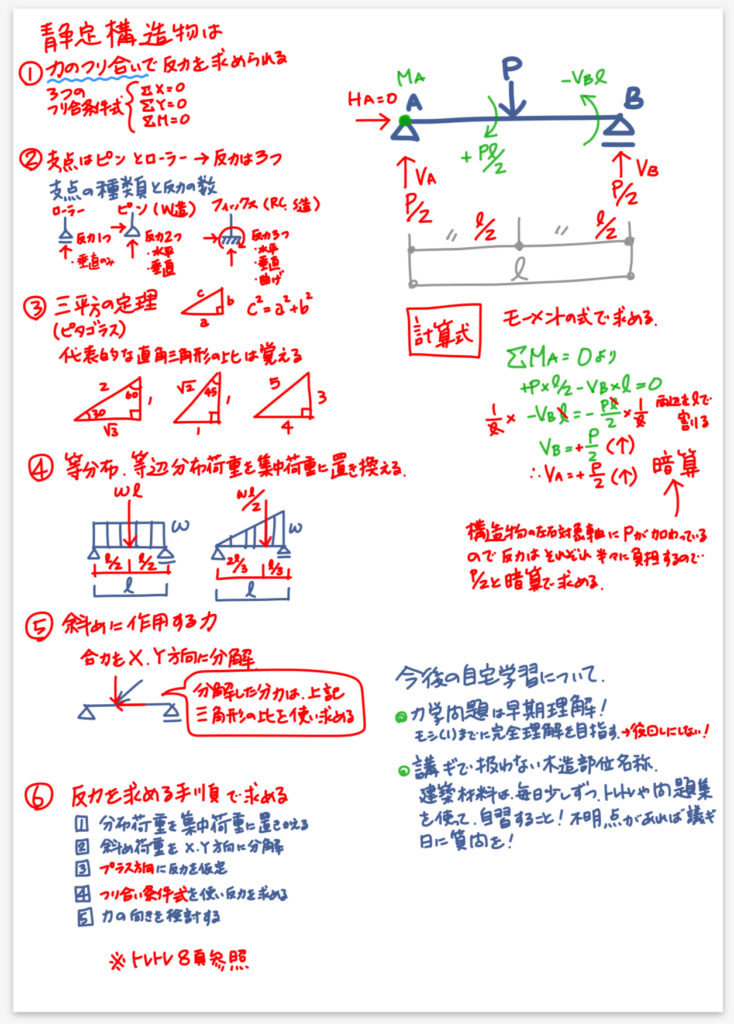 静定構造物は
① 力のつり合いで反力を求められる
3つの
つり合条件式
ΣX=0
ΣY=0
ΣM=0
② 支点はピンとローラー→反力は3つ
支点の種類と反力の数
ローラー
反力1つ
・垂直のみ
ピン(W造)
反力2つ
・水平
・垂直
フィックス(RC、S造)
反力3つ
・水平
・垂直
・曲げ
③ 三平方の定理
(ピタゴラス)
c
b
a
c²=a²+b²
代表的な直角三角形の比は覚える
2
60
1
30
√3
√2
45
1
1
5
3
4
④ 等分布、等辺分布荷重を集中荷重に置き換える。
wl
w
l/2
l/2
l
wl/2
w
2l/3
l/3
l
⑤ 斜めに作用する力
合力をX、Y方向に分解
分解した分力は、上記
三角形の比を使い求める
⑥ 反力を求める手順で求める
1 分布荷重を集中荷重に置きかえる
2 斜め荷重をX、Y方向に分解
3 プラス方向に反力を仮定
4 つり合い条件式を使い反力を求める
5 力の向きを検討する
※トレトレ8頁参照
MA
P
-VBl
HA=0
A
B
+Pl/2
VA
P/2
VB
P/2
〃
l/2
〃
l/2
l
計算式
モーメントの式で求める。
ΣMA=0より
+P×l/2-VB×l=0
1/l× -VBl=-Pl/2×1/l
両辺をlで
割る
VB=+P/2(↑)
∴VA=+P/2(↑)
暗算
構造物の左右対象軸にPが加わっている
ので反力はそれぞれ半々に負担するので
P/2と暗算で求める。
今後の自宅学習について。
力学問題は早期理解!
モシ(1)までに完全理解を目指す。→後回しにしない!
講ギで扱わない木造部位名称、
建築材料は、毎日少しずつ、トレトレや問題集
を使って、自習すること!不明点があれば講ギ
日に質問を!